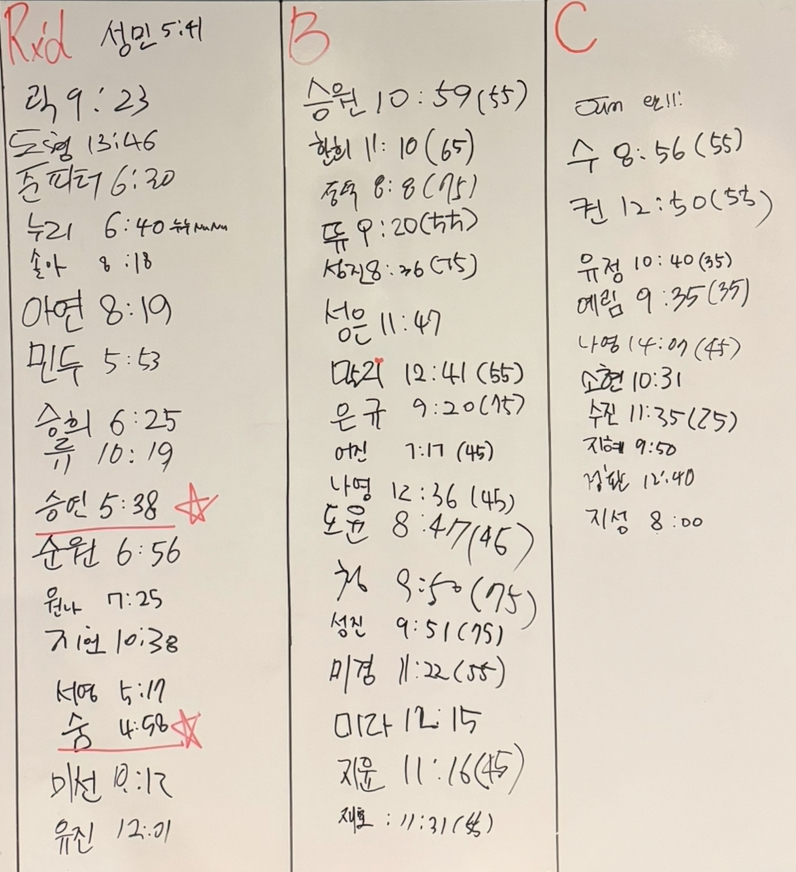 Rx'd 성민 5:41
락 9:23
도형 13:46
준피터 6:30
누리 6:40
솔아 8:18
아연 8:19
민두 5:53
승희 6:25
류 10:19
승연 5:38
순원 6:56
원나 7:25
지현 10:38
서영 5:17
숨 4:58
미선 10:12
유진 12:01
B
승원 10:59(55)
한희 11:10(65)
8:8(75)
뚜 9:20
성진 8:36(75)
성은 11:47
12:41(55)
은규 9:20(75)
어진 7:17(45)
나영 12:36(45)
도윤 8:47(45)
9:50(75)
성진 9:51(75)
미경 11:22(55)
미라 12:15
지윤 11:16(45)
재호:11:31
C
수 8:56(55)
퀸 12:50(55)
유정 10:40(35)
예림 9:35(35)
나영 14:07(45)
소현 10:31
수진 11:35(25)
지혜 9:50
12:40
지성 8:00